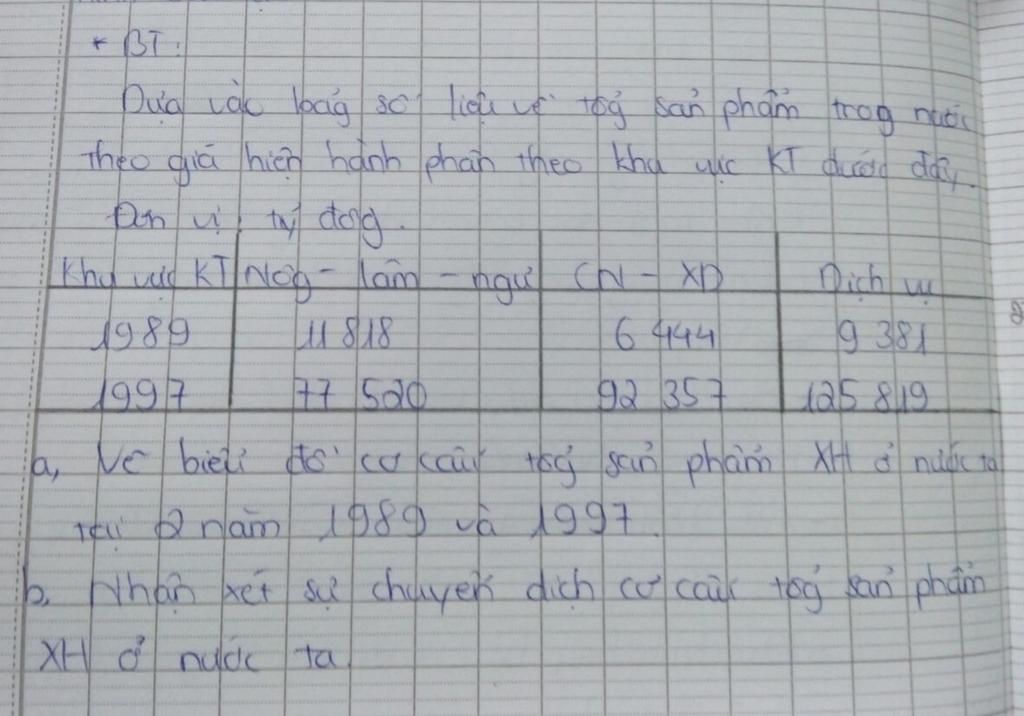 * BT:
Dựa vào bảg số liệu về tổg sản phẩm trog nước
theo giá hiện hành phân theo khu vực KT dưới đây.
Đơn vị tỷ đồg.
Khu vực KT Nôg - lâm - ngư CN - XD Dịch vụ
1989 11 818 6 444 9 381
1997 77 520 92 357 125 819
a, Vẽ biểu đồ cơ cấu tổg sản phẩm XH ở nước ta
tại 2 năm 1989 và 1997.
b, Nhận xét sự chuyển dịch cơ cấu tổg sản phẩm
XH ở nước ta